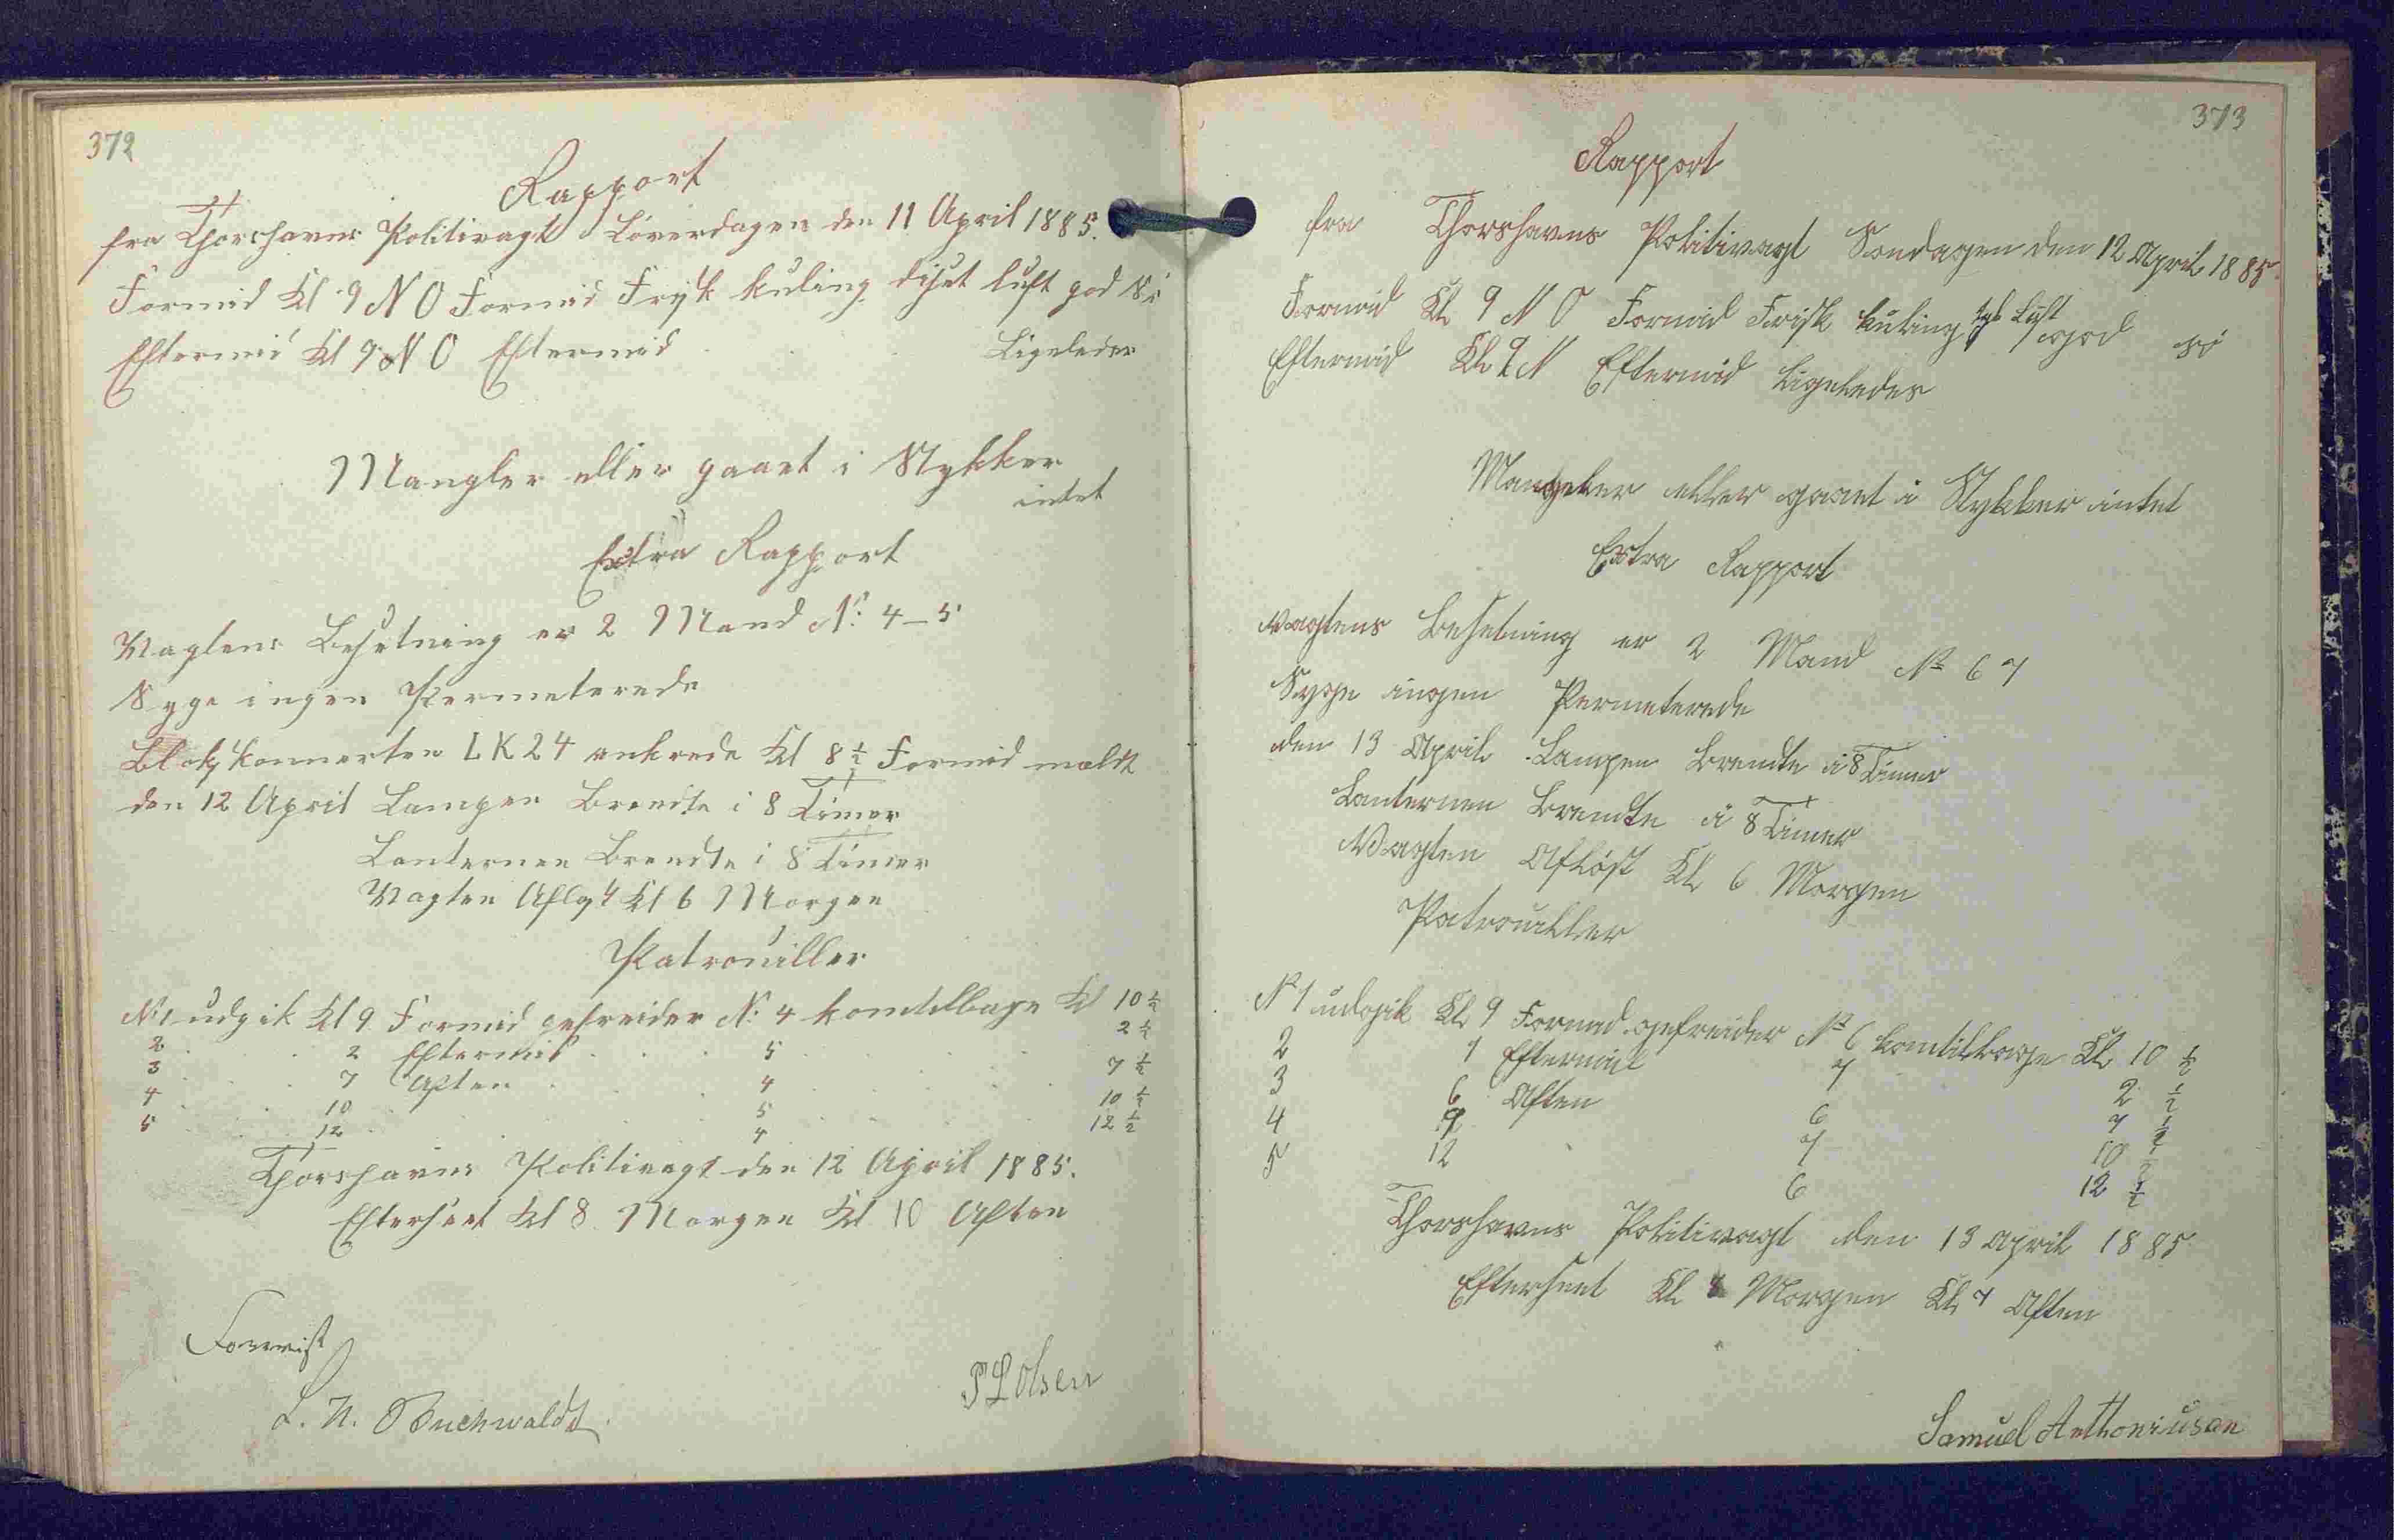 372
Rapport
fra Thorshavns Politivagt Löverdagen den 11 April 1885.
Formid Kl 9 N O Formid Frisk kuling diset luft god Sö
Eftermid Kl 9 N O Eftermid Ligeledes
Mangler eller gaaet i Stykker
intet
Extra Rapport
Vagtens Besetning er 2 Mand No. 4-5
Syge ingen Permeterede
LK 24 ankrede Kl 8 1/2 Formid meldt
den 12 April Lampen Brendte i 8 Timer
Lanternen Brendte i 8 Timer
Vagten Afløst Kl 6 Morgen
Patrouiller
No 1 udgik Kl 9 Formid gefreider No. 4 komtilbage Kl 10 1/2
2 2 Eftermid 5 2 1/2
3 7 Aften 4 7 1/2
4 10 5 10 1/2
5 12 4 12 1/2
Thorshavns Politivagt den 12 April 1885.
Efterseet Kl 8 Morgen Kl 10 Aften
Forevist
L. N. Buchwaldt
P L Olsen
373
Rapport
fra Thorshavns Politivagt Sondagen den 12 April 1885.
Formid Kl 9 N O Formid Frisk kuling Luft god sö
Eftermid Kl 9 N Eftermid Ligeledes
Mangeler eller gaaet i Stykker intet
Extra Rapport
Vagtens Besetning er 2 Mand No 6 7
Syge ingen Permeterede
den 13 April Lampen Brendte i 8 Timer
Lanternen Brendte i 8 Timer
Vagten Afløst Kl 6 Morgen
Patrouiller
No 1 udgik Kl 9 Formid gefreider No 6 komtilbage Kl 10 1/2
2 1 Eftermid 7 2 1/2
3 6 Aften 6 7 1/2
4 9 7 10 1/2
5 12 6 12 1/2
Thorshavns Politivagt den 13 April 1885
Efterseet Kl 8 Morgen Kl 7 Aften
Samuel Anthoniusen